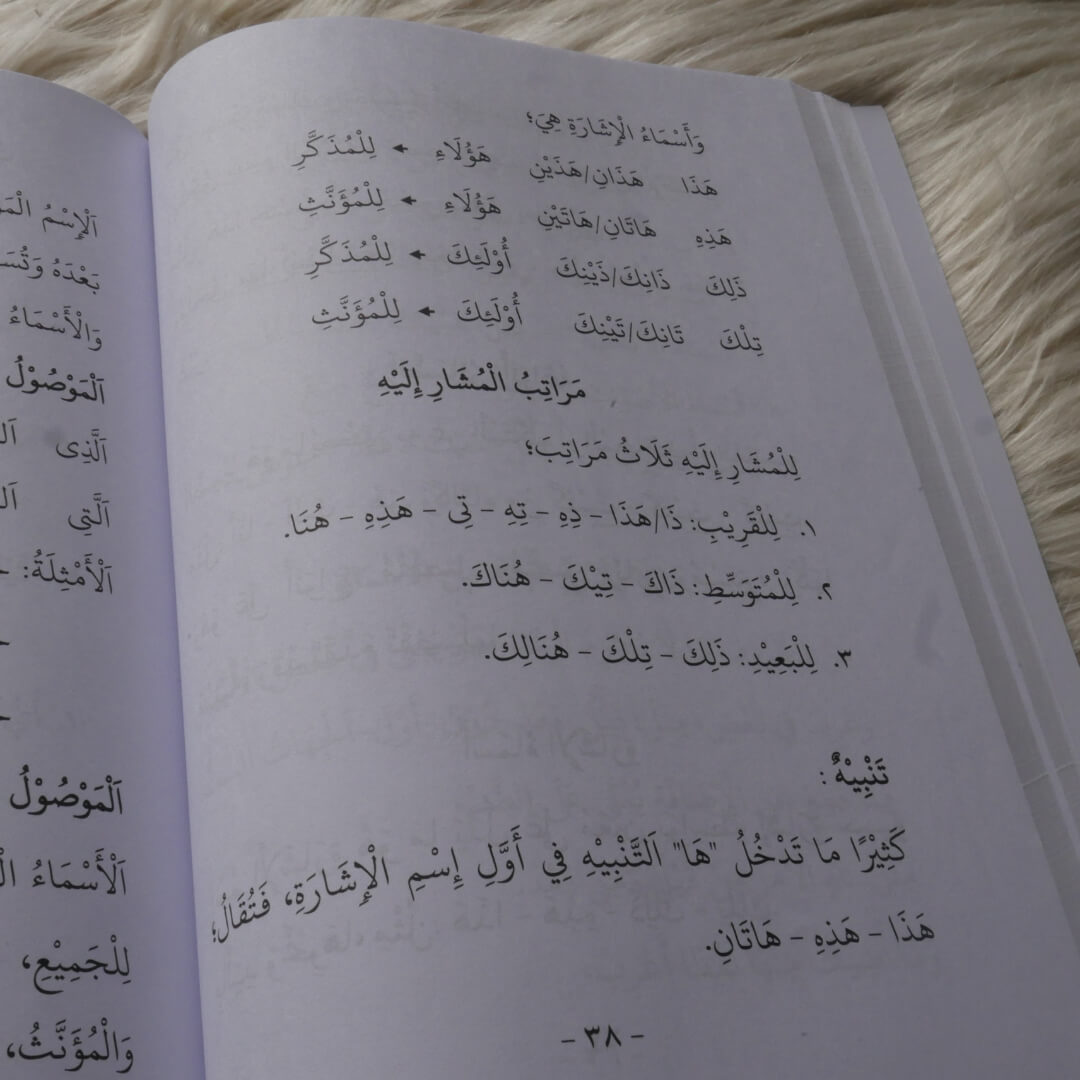 وَأَسْمَاءُ الْإِشَارَةِ هِيَ؛
هَذَا هَذَانِ/هَذَيْنِ هَؤُلَاءِ ← لِلْمُذَكَّرِ
هَذِهِ هَاتَانِ/هَاتَيْنِ هَؤُلَاءِ ← لِلْمُؤَنَّثِ
ذَلِكَ ذَانِكَ/ذَيْنِكَ أُوْلَئِكَ ← لِلْمُذَكَّرِ
تِلْكَ تَانِكَ/تَيْنِكَ أُوْلَئِكَ ← لِلْمُؤَنَّثِ
مَرَاتِبُ الْمُشَارِ إِلَيْهِ
لِلْمُشَارِ إِلَيْهِ ثَلَاثُ مَرَاتِبَ؛
١. لِلْقَرِيْبِ: ذَا/هَذَا - ذِهِ - تِهِ - تِى - هَذِهِ - هُنَا.
٢. لِلْمُتَوَسِّطِ: ذَاكَ - تِيْكَ - هُنَاكَ.
٣. لِلْبَعِيْدِ: ذَلِكَ - تِلْكَ - هُنَالِكَ.
تَنْبِيْهٌ :
كَثِيْرًا مَا تَدْخُلُ "هَا" اَلتَّنْبِيْهِ فِي أَوَّلِ إِسْمِ الْإِشَارَةِ، فَتُقَالُ؛
هَذَا - هَذِهِ - هَاتَانِ.
- ٣٨ -
اَلْإِسْمُ
بَعْدَهُ
وَالْأَسْمَاءُ
اَلْمَوْصُوْلُ
اَلَّذِى
اَلَّتِى
اَلْأَمْثِلَةُ:
اَلْمَوْصُوْلُ
اَلْأَسْمَاءُ
لِلْجَمِيْعِ،
وَالْمُؤَنَّثُ،